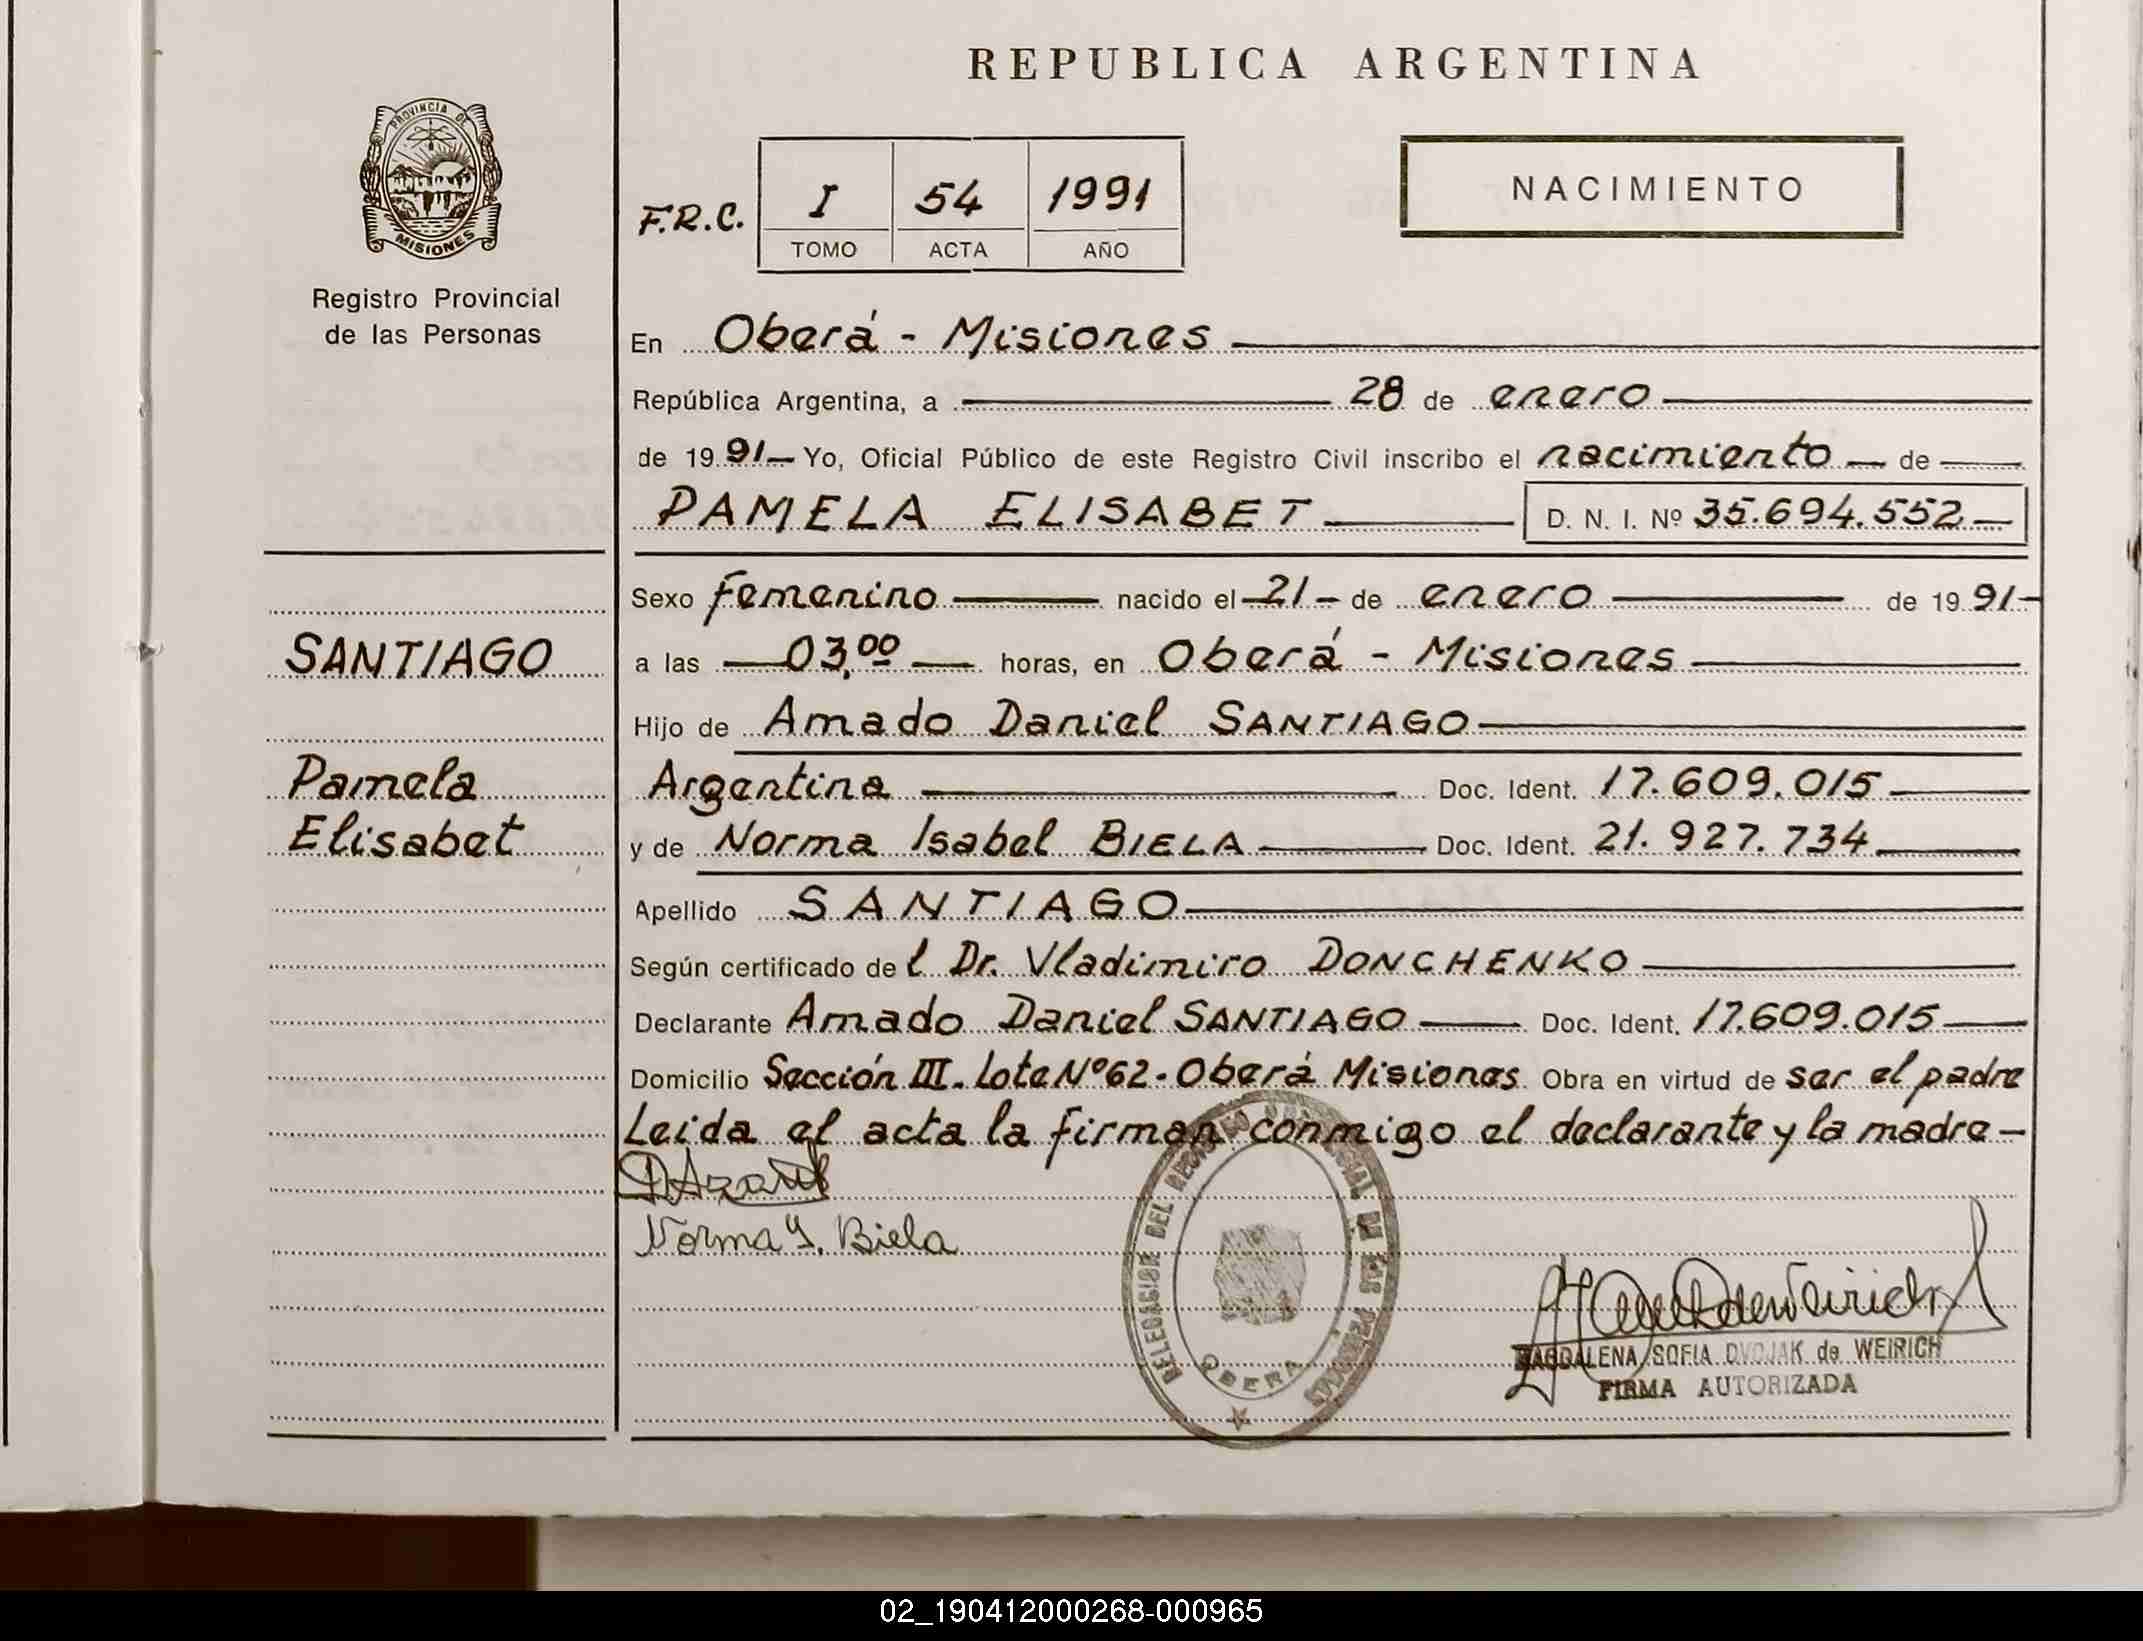 REPUBLICA ARGENTINA
PROVINCIA DE
MISIONES
Registro Provincial
de las Personas
F.R.C.
I 54 1991
TOMO ACTA AÑO
NACIMIENTO
En Oberá - Misiones
República Argentina, a 28 de enero
de 1991 Yo, Oficial Público de este Registro Civil inscribo el nacimiento de
PAMELA ELISABET D. N. I. Nº 35.694.552
Sexo femenino nacido el 21 de enero de 1991
a las 03,00 horas, en Oberá - Misiones
Hijo de Amado Daniel SANTIAGO
Argentina Doc. Ident. 17.609.015
y de Norma Isabel BIELA Doc. Ident. 21.927.734
Apellido SANTIAGO
Según certificado del Dr. Vladimiro DONCHENKO
Declarante Amado Daniel SANTIAGO Doc. Ident. 17.609.015
Domicilio Sección III. Lote Nº 62. Oberá Misiones Obra en virtud de ser el padre
Leida el acta la firman conmigo el declarante y la madre
SANTIAGO
Pamela
Elisabet
Norma Y. Biela
DELEGACION DEL REGISTRO PROVINCIAL DE LAS PERSONAS
OBERA
MAGDALENA SOFIA DVOJAK de WEIRICH
FIRMA AUTORIZADA
02_190412000268-000965